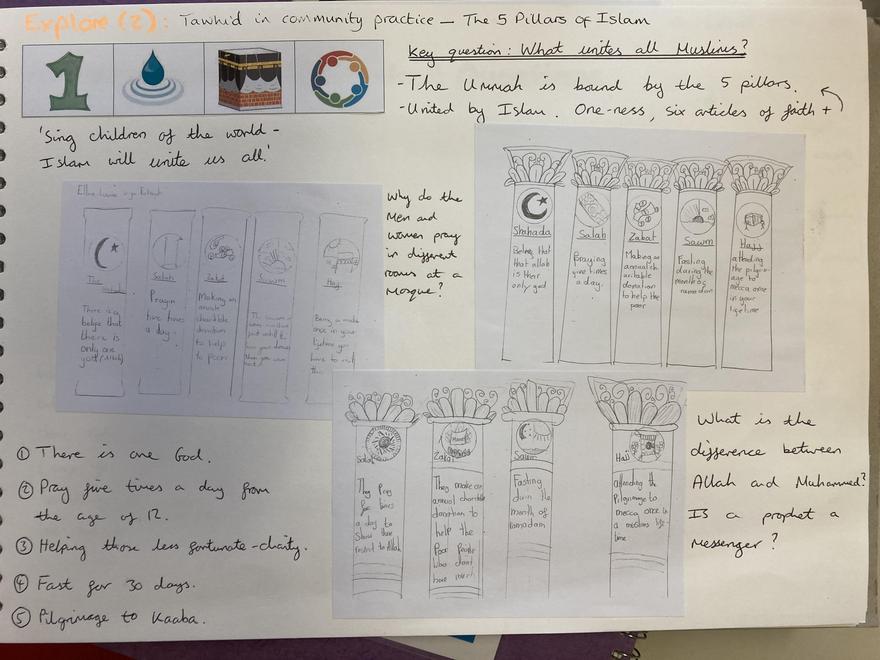 Explore (2): Tawhid in community practice – The 5 Pillars of Islam
Key question: What unites all Muslims?
- The Ummah is bound by the 5 pillars.
- United by Islam. One-ness, six articles of faith +
'Sing children of the world -
Islam will unite us all.'
1
Why do the
Men and
women pray
in different
rooms at a
Mosque?
The
There is a
belife that
there is
only one
god (Allah)
Salah
Prayin
five times
a day.
Zakat
Making an
annule
charitible
donation
to help
to poor
Sawm
Hajj
Being a make
once in your
lifetime you
have to visit
Shahada
Beleive that
that allah
is ther
only god
Salah
Praying
five times
a day.
Zakat
Making an
annual ch
aritable
donation
to help the
poor
Sawm
Fasting
during the
month of
ramadan
Hajj
attending
the pilgrim
age to
mecca once
in your
lifetime
Salah
They Pray
five times
a day to
Show there
to Allah
Zakat
They make an
annual charitable
donation to
help the
Poor People
who dont
have
Sawm
Fasting
durin the
month of
ramadan
Hajj
attending the
Pilgrimage to
mecca once in
a muslims life
time
① There is one God.
② Pray five times a day from
the age of 12.
③ Helping those less fortunate - charity.
④ Fast for 30 days.
⑤ Pilgrimage to Kaaba.
What is the
difference between
Allah and Muhammed?
Is a prophet a
messenger?